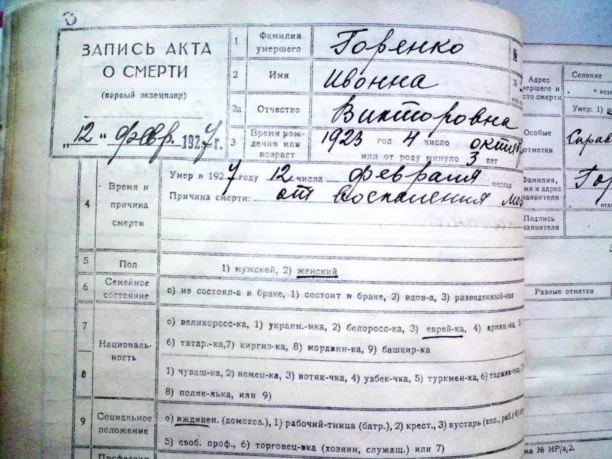 ЗАПИСЬ АКТА
О СМЕРТИ
(первый экземпляр)
„12" февр. 1927 г.
1 Фамилия умершего Горенко
2 Имя Ивонна
2а Отчество Викторовна
3 Время рождения или возраст 1923 год 4 число октя
или от роду минуло 3 лет
4 Время и причина смерти
Умер в 1927 году 12 числа февраля месяца
Причина смерти: от воспаления
5 Пол 1) мужской, 2) женский
6 Семейное состояние о) не состоял-а в браке, 1) состоит в браке, 2) вдов-а, 3) разведенный-ая
7 Националь-
ность
о) великоросс-ка, 1) украин.-нка, 2) белоросс-ка, 3) еврей-ка, 4) армян.-ка, 5
6) татар.-ка, 7) киргиз-ка, 8) мордвин-ка, 9) башкир-ка
8 1) чуваш-ка, 2) немец-ка, 3) вотяк-чка, 4) узбек-чка, 5) туркмен-ка, 6)
8) поляк-лька, или 9)
9 Социальное положение о) иждивен. (домохоз.), 1) рабочий-тница (батр.), 2) крест., 3) кустарь
5) своб. проф., 6) торговец-вка (хозяин, служащ.) или 7)
№
Адрес
умершего и
место смерти
Селение
Умер: 1)
Особые отметки
Справ
Фамилия,
имя и адрес
заявителя
Гор
Подпись
заявителя
Разные отметки
ма № НР/а,2.